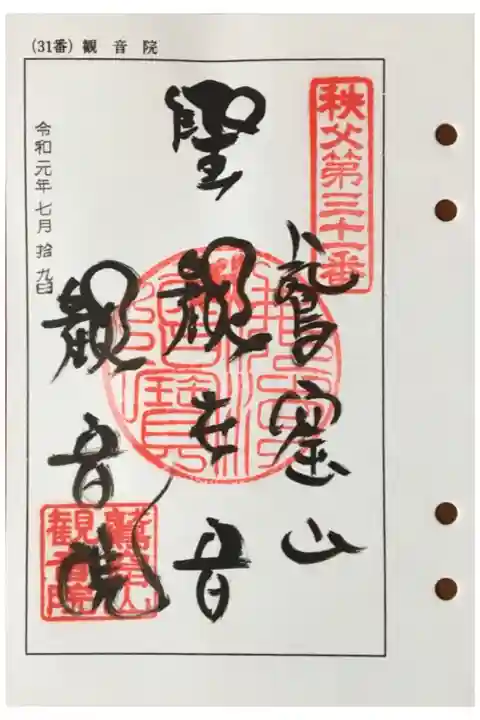 (31番) 観 音 院
秩父第三十一番
鷲窟山
聖観世音
観音院
令和元年七月拾九日
鷲窟山
観音院